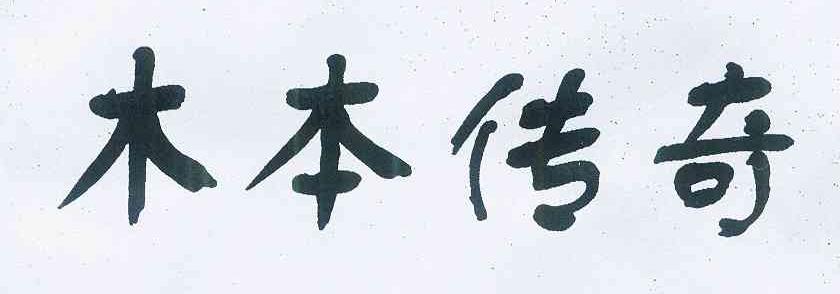 木本传奇